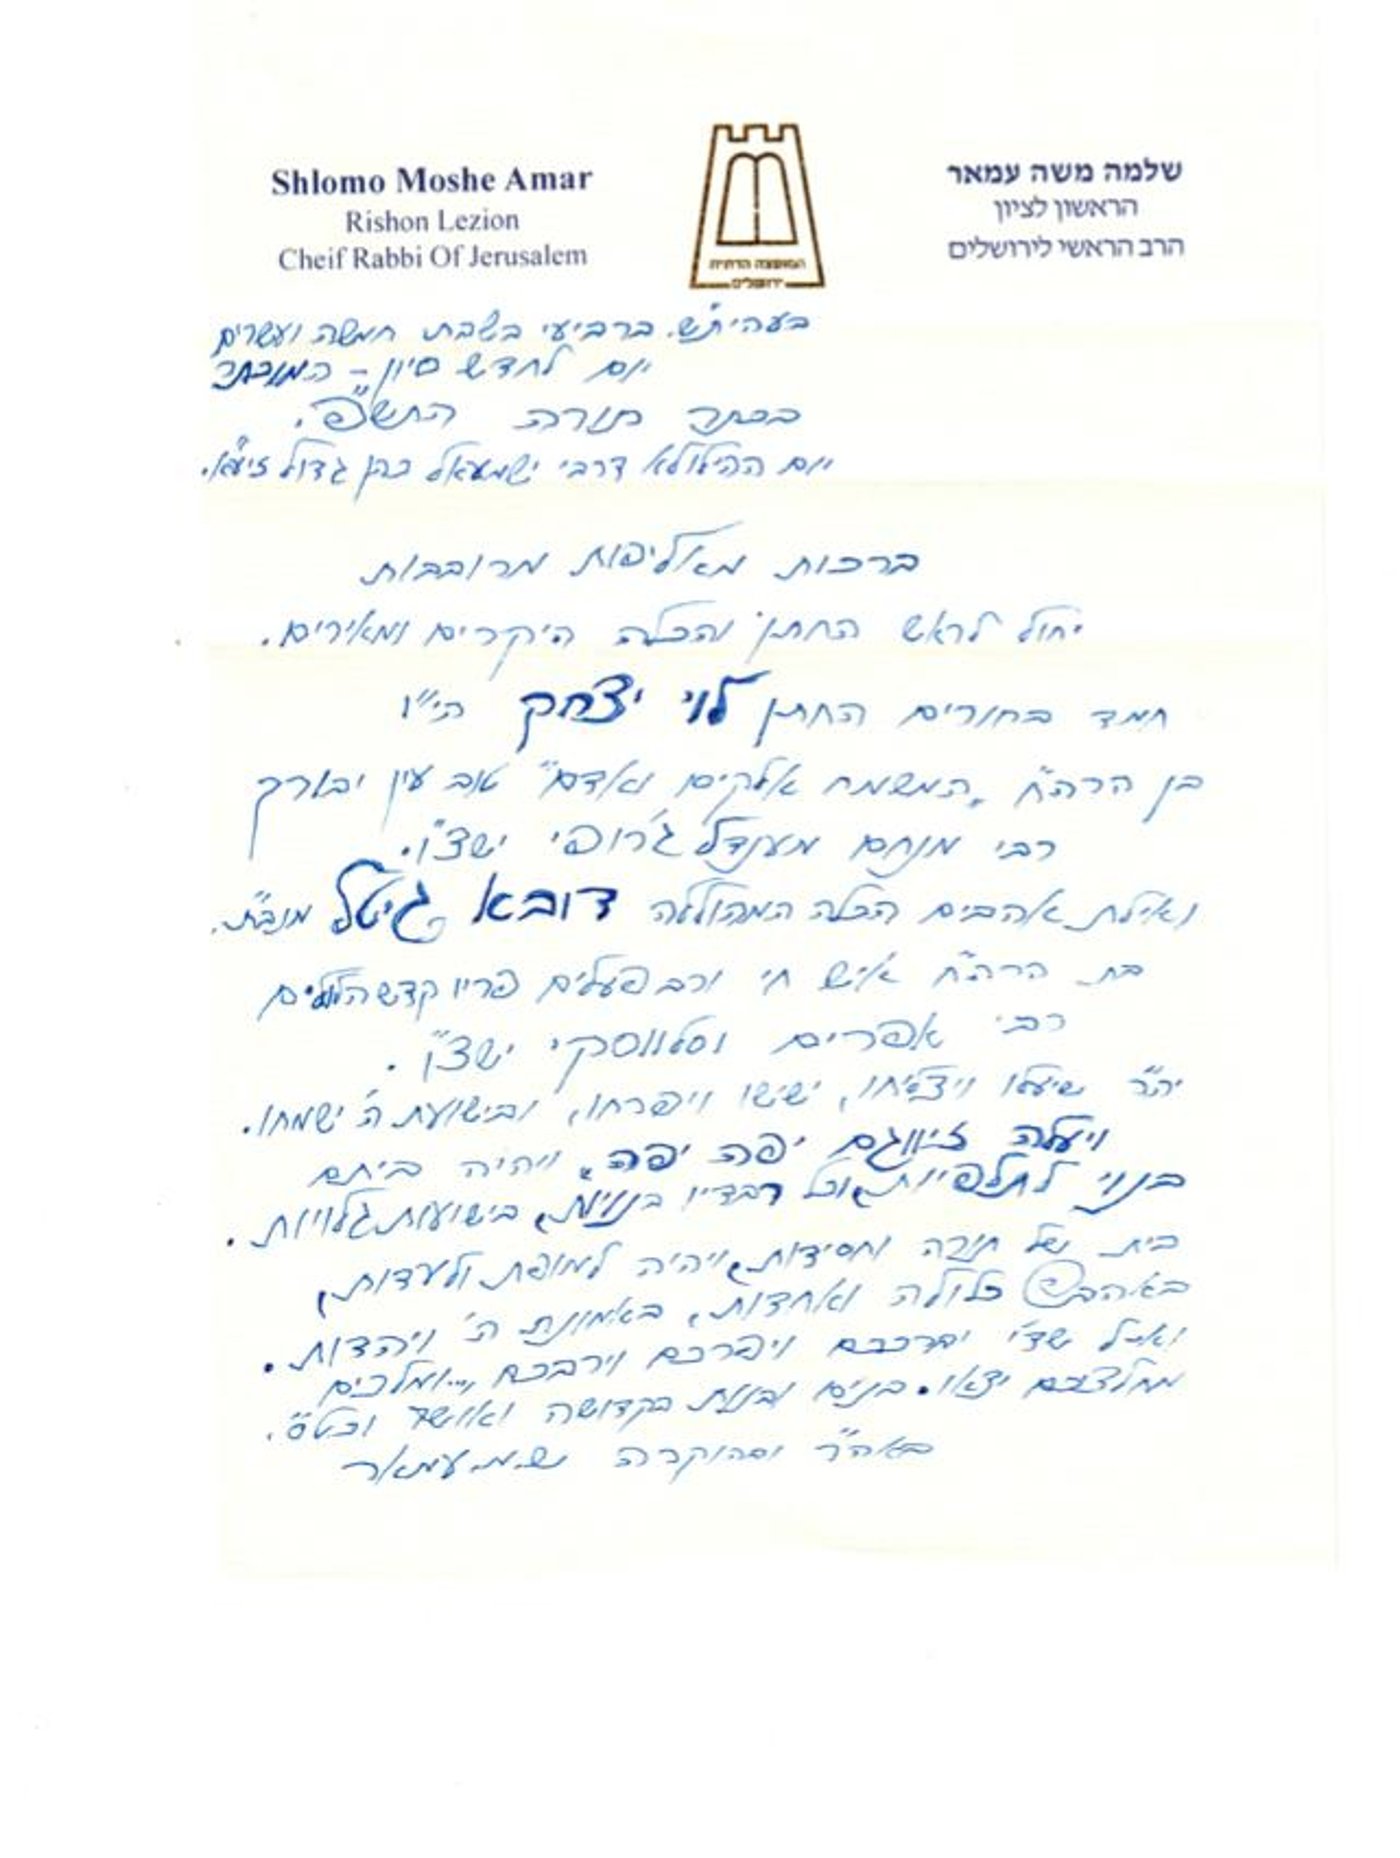 Shlomo Moshe Amar
Rishon Lezion
Cheif Rabbi Of Jerusalem
שלמה משה עמאר
הראשון לציון
הרב הראשי לירושלים
המועצה הדתית
ירושלים
בעהית"ש. ברביעי בשבת חמשה ועשרים
יום לחדש סיון - המוכתר
בכתר תורה התש"פ.
יום ההילולא דרבי ישמעאל כהן גדול זיע"א.
ברכות מאליפות מרובבות
יחול לראש החתן והכלה היקרים ומאירים.
חמד בחורים החתן לוי יצחק הי"ו
בן הרה"ח "המשמח אלקים ואדם" טוב עין יבורך
רבי מנחם מענדל ג'רופי ישצ"ו.
ואילת אהבים הכלה המהוללה דובא גיטל מנב"ת.
בת הרה"ח איש חי ורב פעלים פריו קדש הלולים
רבי אפרים וסלווסקי ישצ"ו.
יה"ר שיעלו ויצליחו, ישישו ויפרחו, ובישועת ה' ישמחו.
ויעלה זיווגם יפה יפה, ויהיה ביתם
בנוי לתלפיות, וכל בנויות, בישועות גלויות.
בית של תורה וחסידות, ויהיה למופת ולעדות,
באהבה כלולה ואחדות, באמונת ה' ויהדות.
ואל שד"י יברככם ויפרכם וירבכם ,... ומלכים
מחלציכם יצאו. בנים ובנות בקדושה ואושר וכט"ס.
באה"ר ובהוקרה ש.מ. עמאר